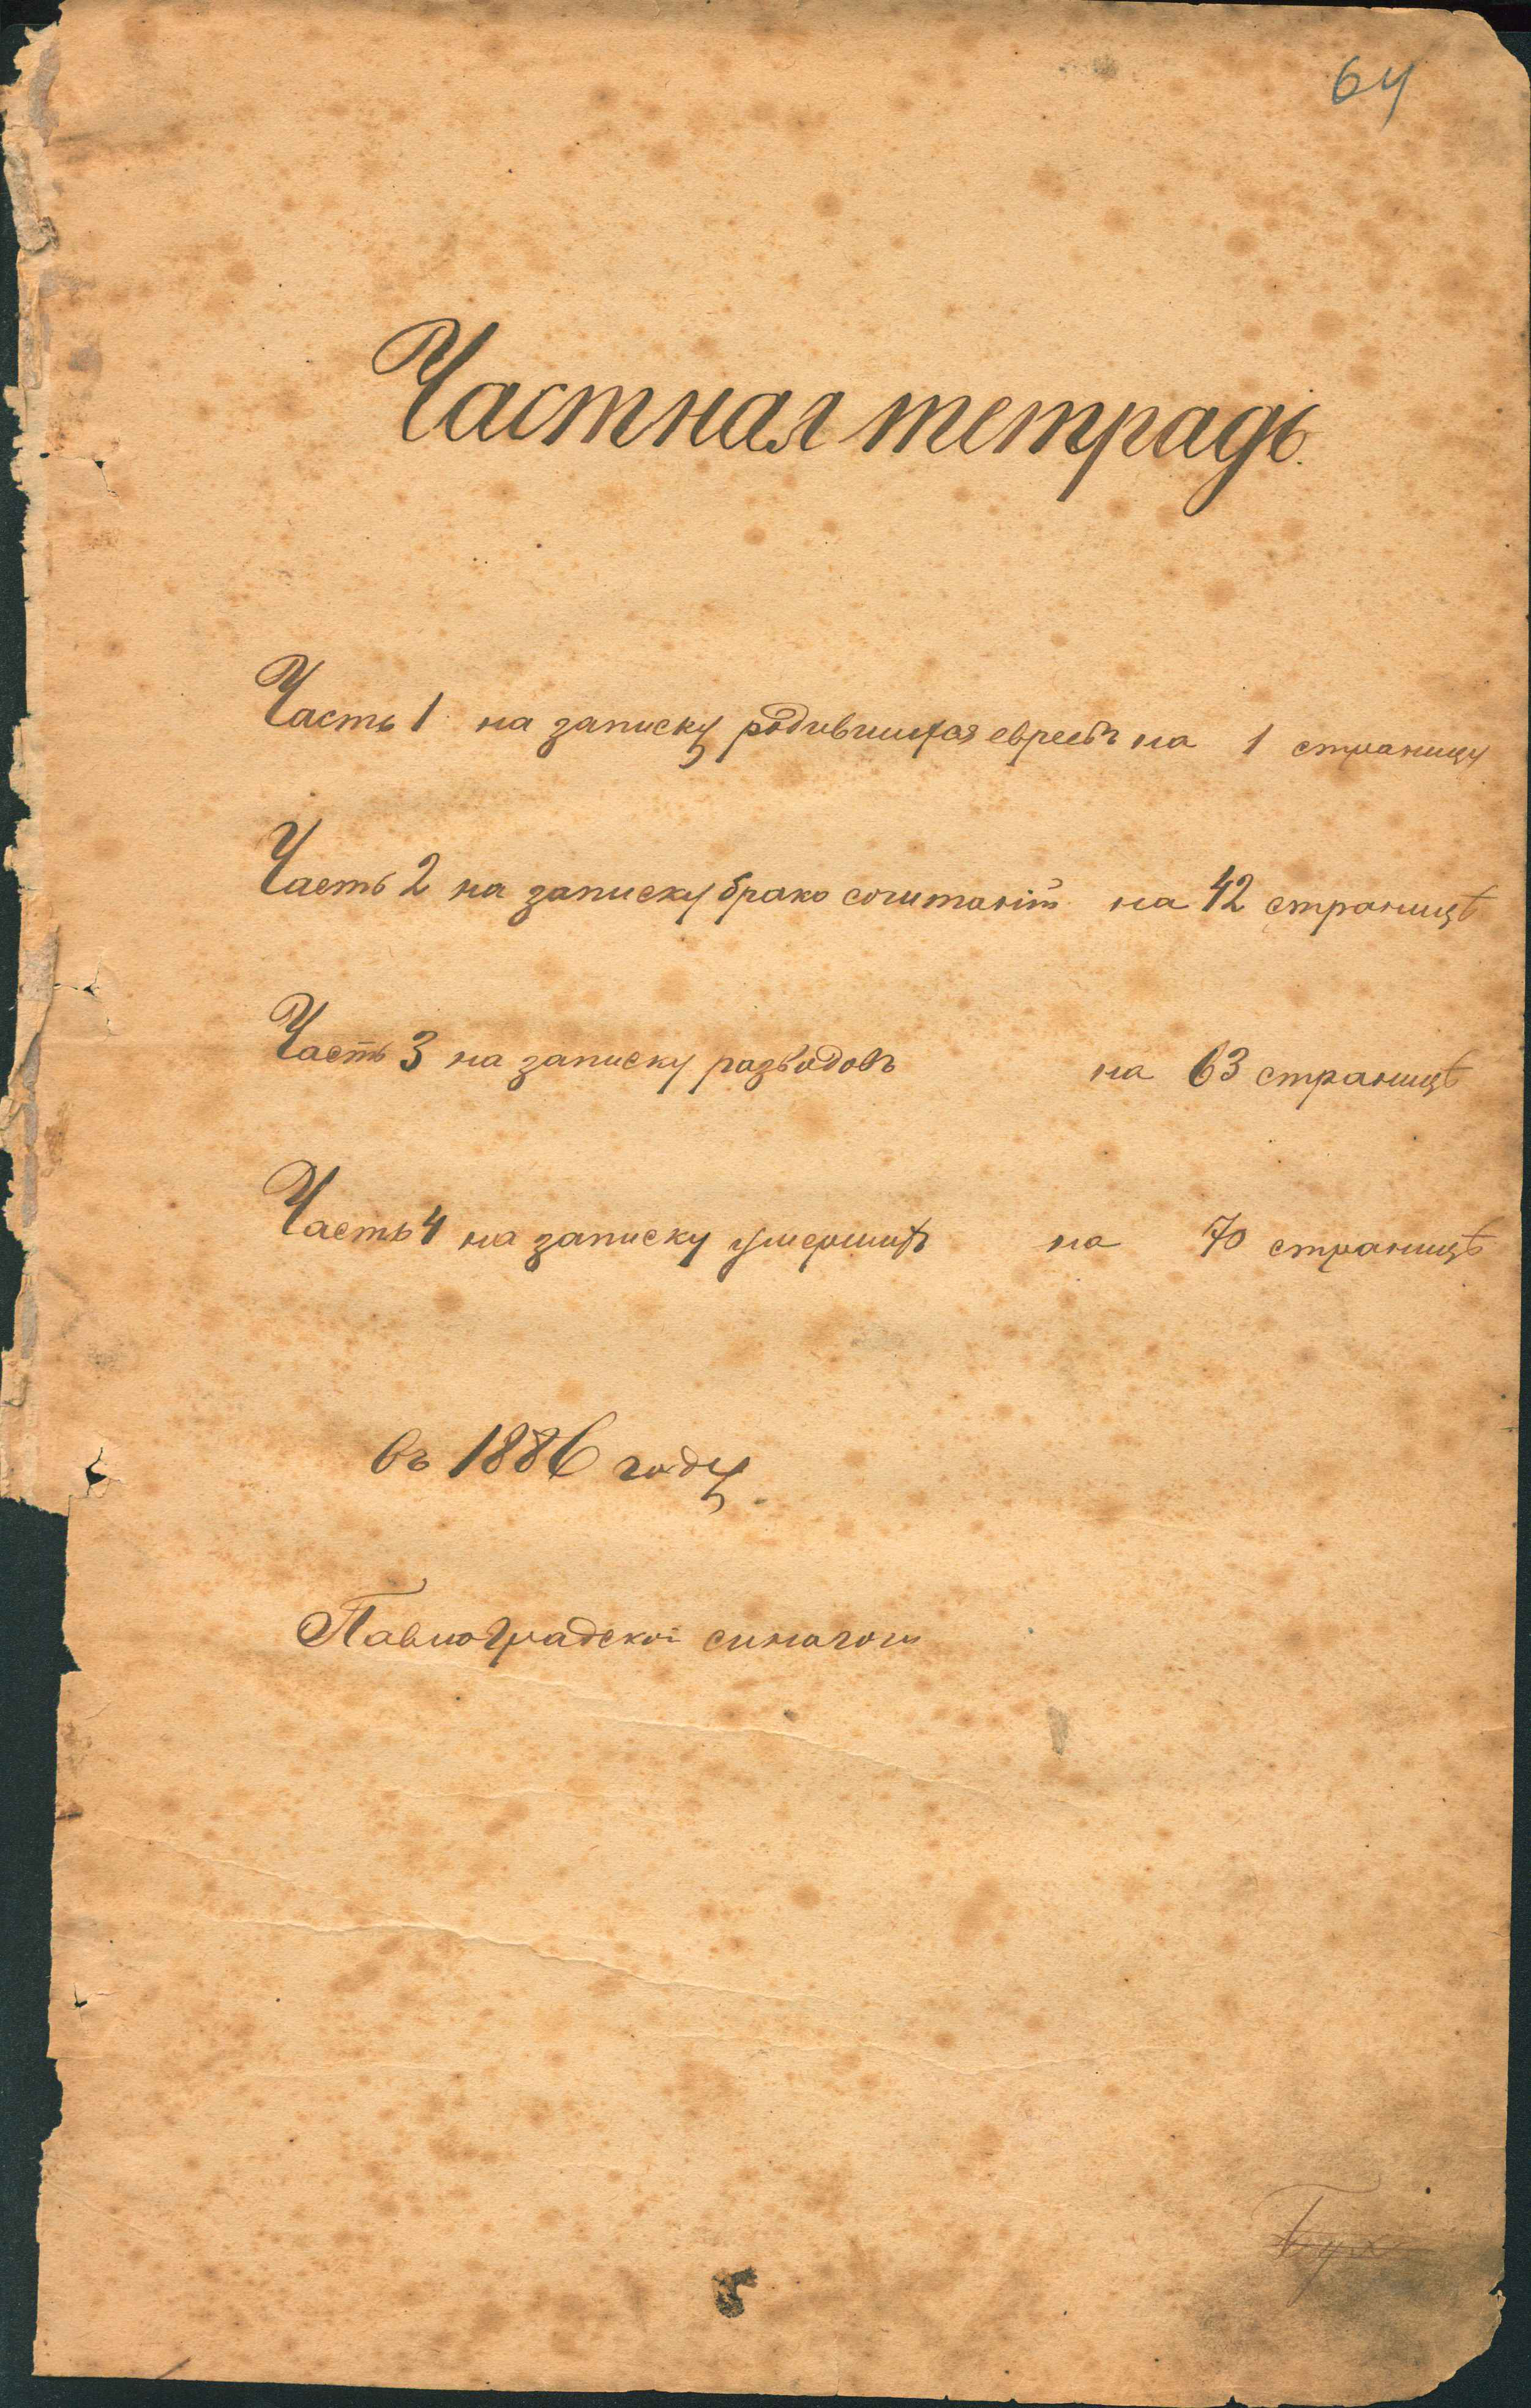 64
Частная тетрадь.
Часть 1 на записку родившихся евреевъ на 1 страницу
Часть 2 на записку брако сочитанiй на 42 страницѣ
Часть 3 на записку разводовъ на 63 страницѣ
Часть 4 на записку умершихъ на 70 страницѣ
въ 1886 году.
Павлоградской синагоги